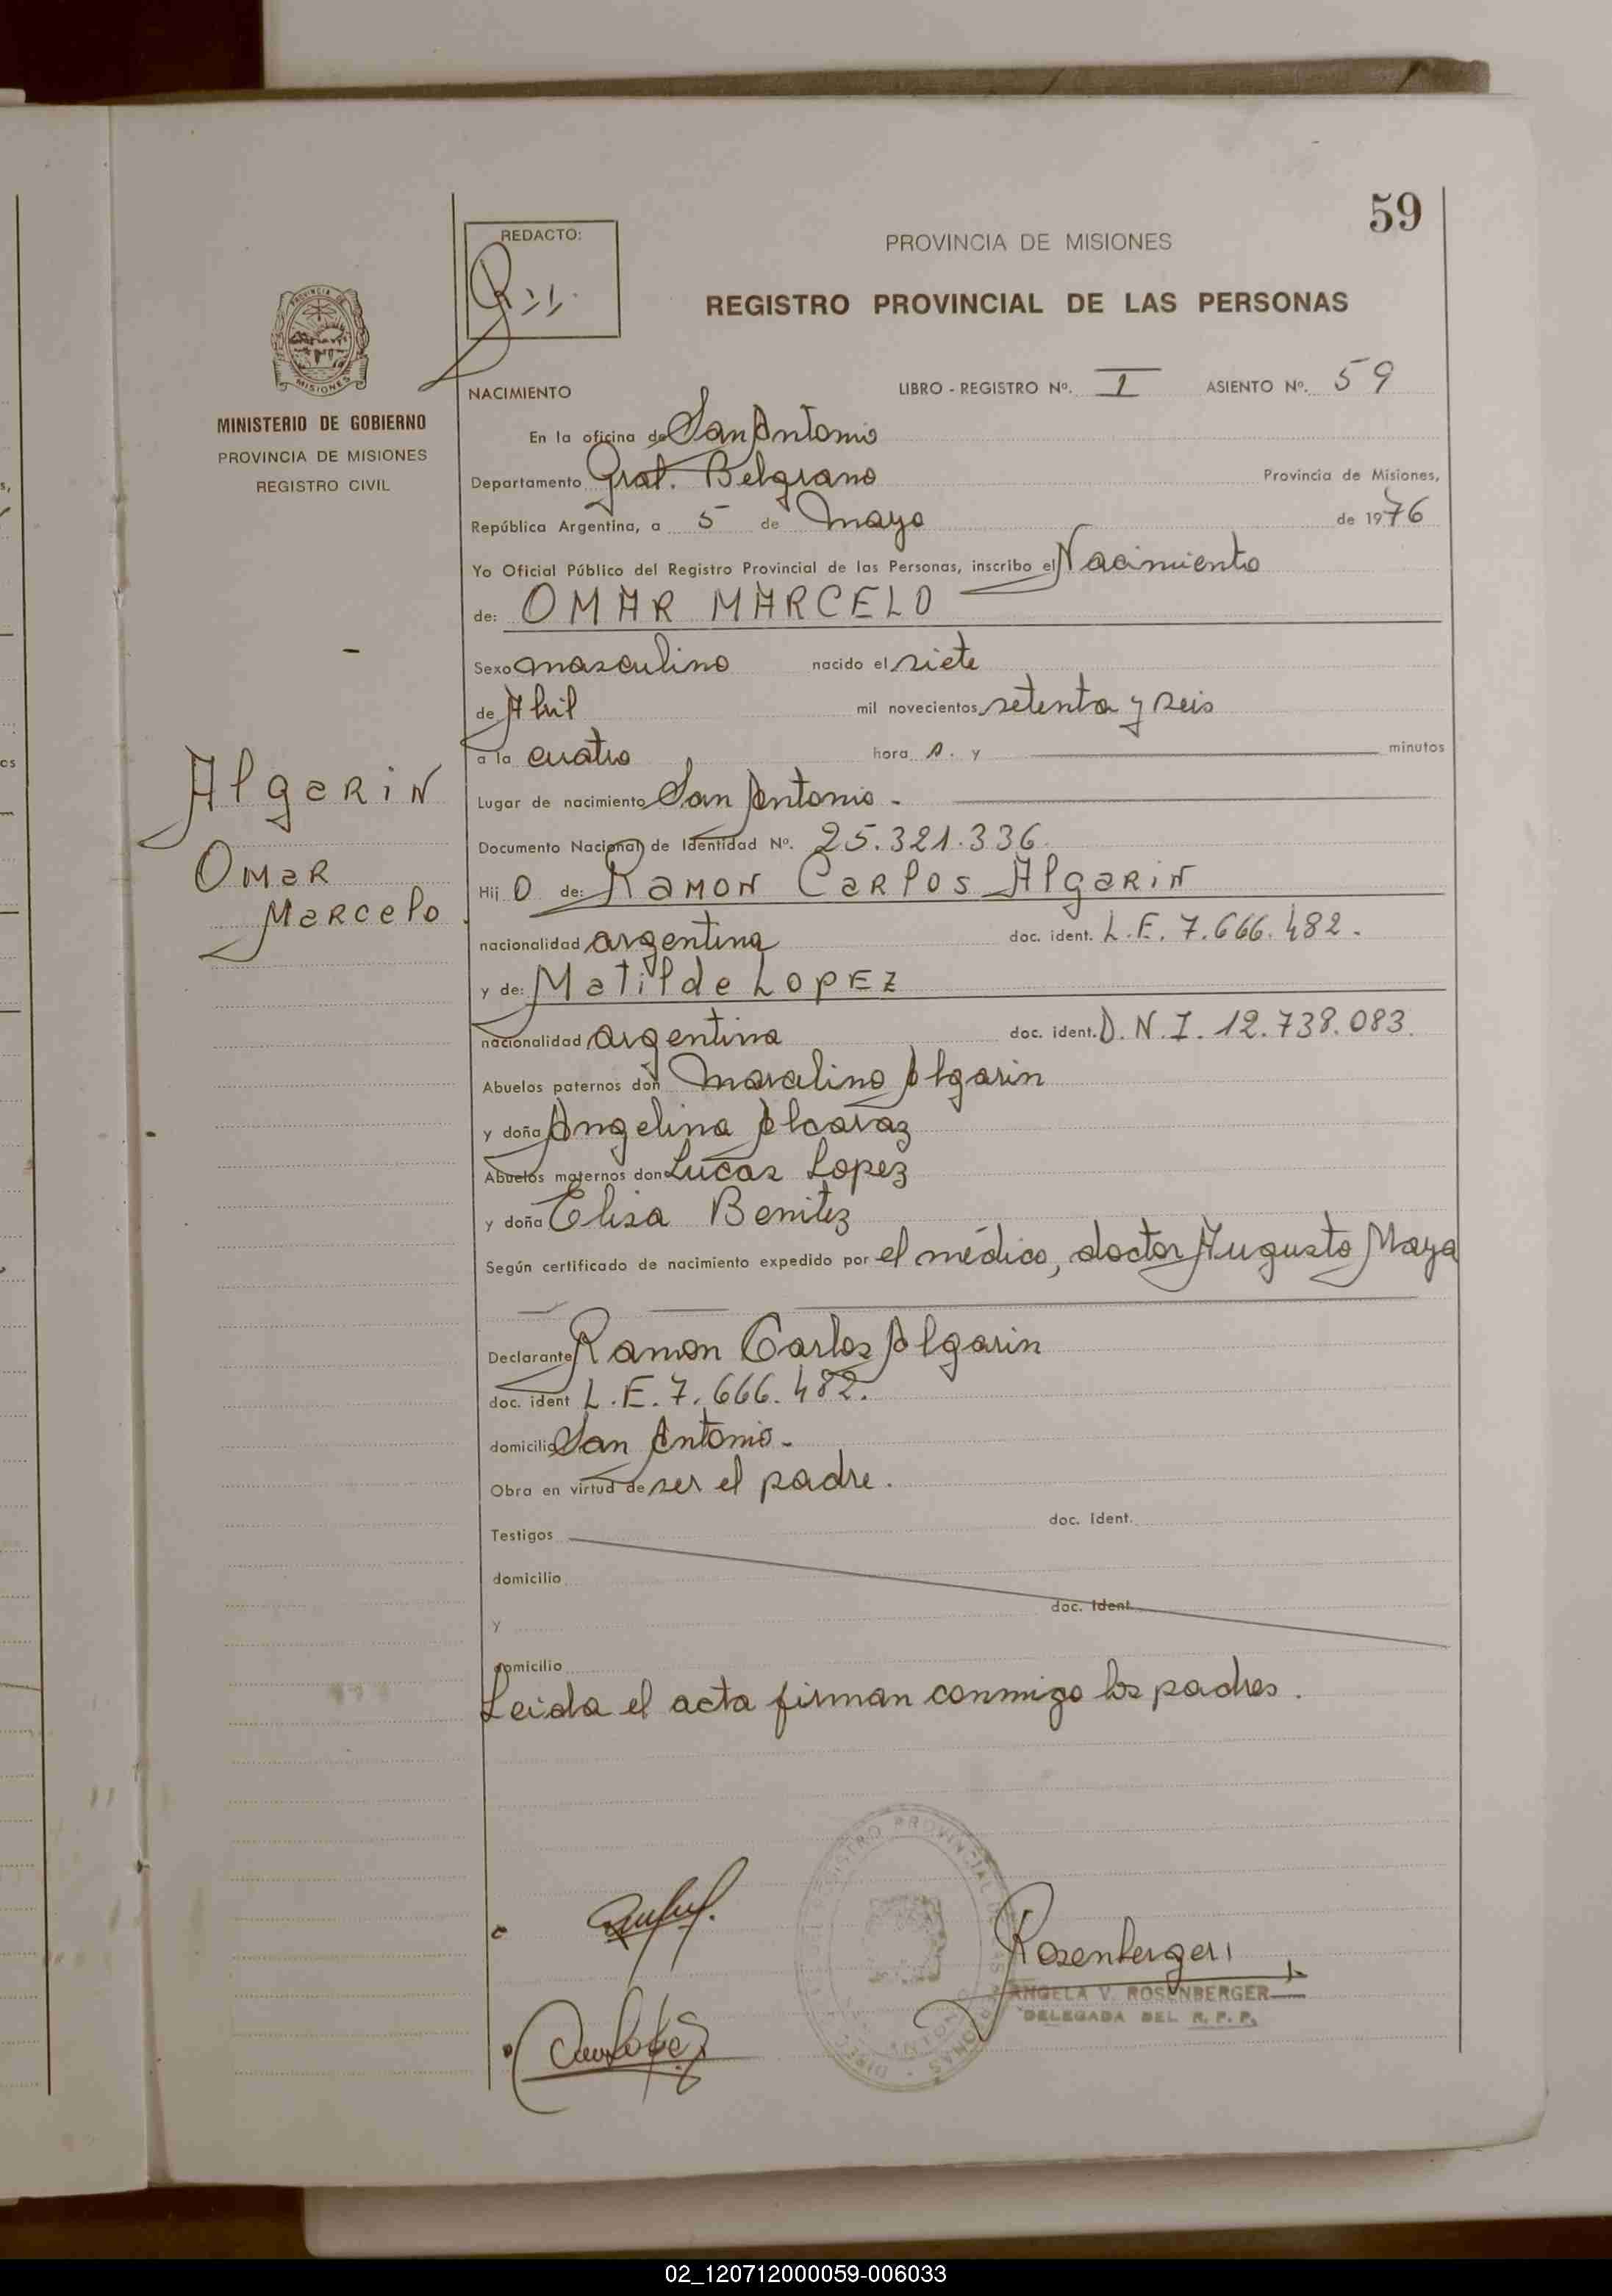 59
REDACTO:
PROVINCIA DE MISIONES
REGISTRO PROVINCIAL DE LAS PERSONAS
MINISTERIO DE GOBIERNO
PROVINCIA DE MISIONES
REGISTRO CIVIL
NACIMIENTO LIBRO - REGISTRO Nº. I ASIENTO Nº. 59
En la oficina de San Antonio
Departamento Gral. Belgrano Provincia de Misiones,
República Argentina, a 5 de Mayo de 1976
Yo Oficial Público del Registro Provincial de las Personas, inscribo el Nacimiento
de: OMAR MARCELO
Sexo masculino nacido el siete
de Abril mil novecientos setenta y seis
a la cuatro hora s. y minutos
Algarin
Omar
Marcelo
Lugar de nacimiento San Antonio -
Documento Nacional de Identidad Nº. 25.321.336
Hij O de: Ramon Carlos Algarin
nacionalidad argentina doc. ident. L.E. 7.666.482.
y de: Matilde Lopez
nacionalidad argentina doc. ident. D.N.I. 12.738.083.
Abuelos paternos don Marcelino Algarin
y doña Angelina Alcaraz
Abuelos maternos don Lucas Lopez
y doña Elisa Benitez
Según certificado de nacimiento expedido por el médico, doctor Augusto Maya
Declarante Ramon Carlos Algarin
doc. ident L.E. 7.666.482.
domicilio San Antonio -
Obra en virtud de ser el padre.
Testigos doc. Ident.
domicilio
y doc. Ident.
domicilio
Leida el acta firman conmigo los padres.
Rosenberger
ANGELA V. ROSENBERGER
DELEGADA DEL R. P. P.
02_120712000059-006033